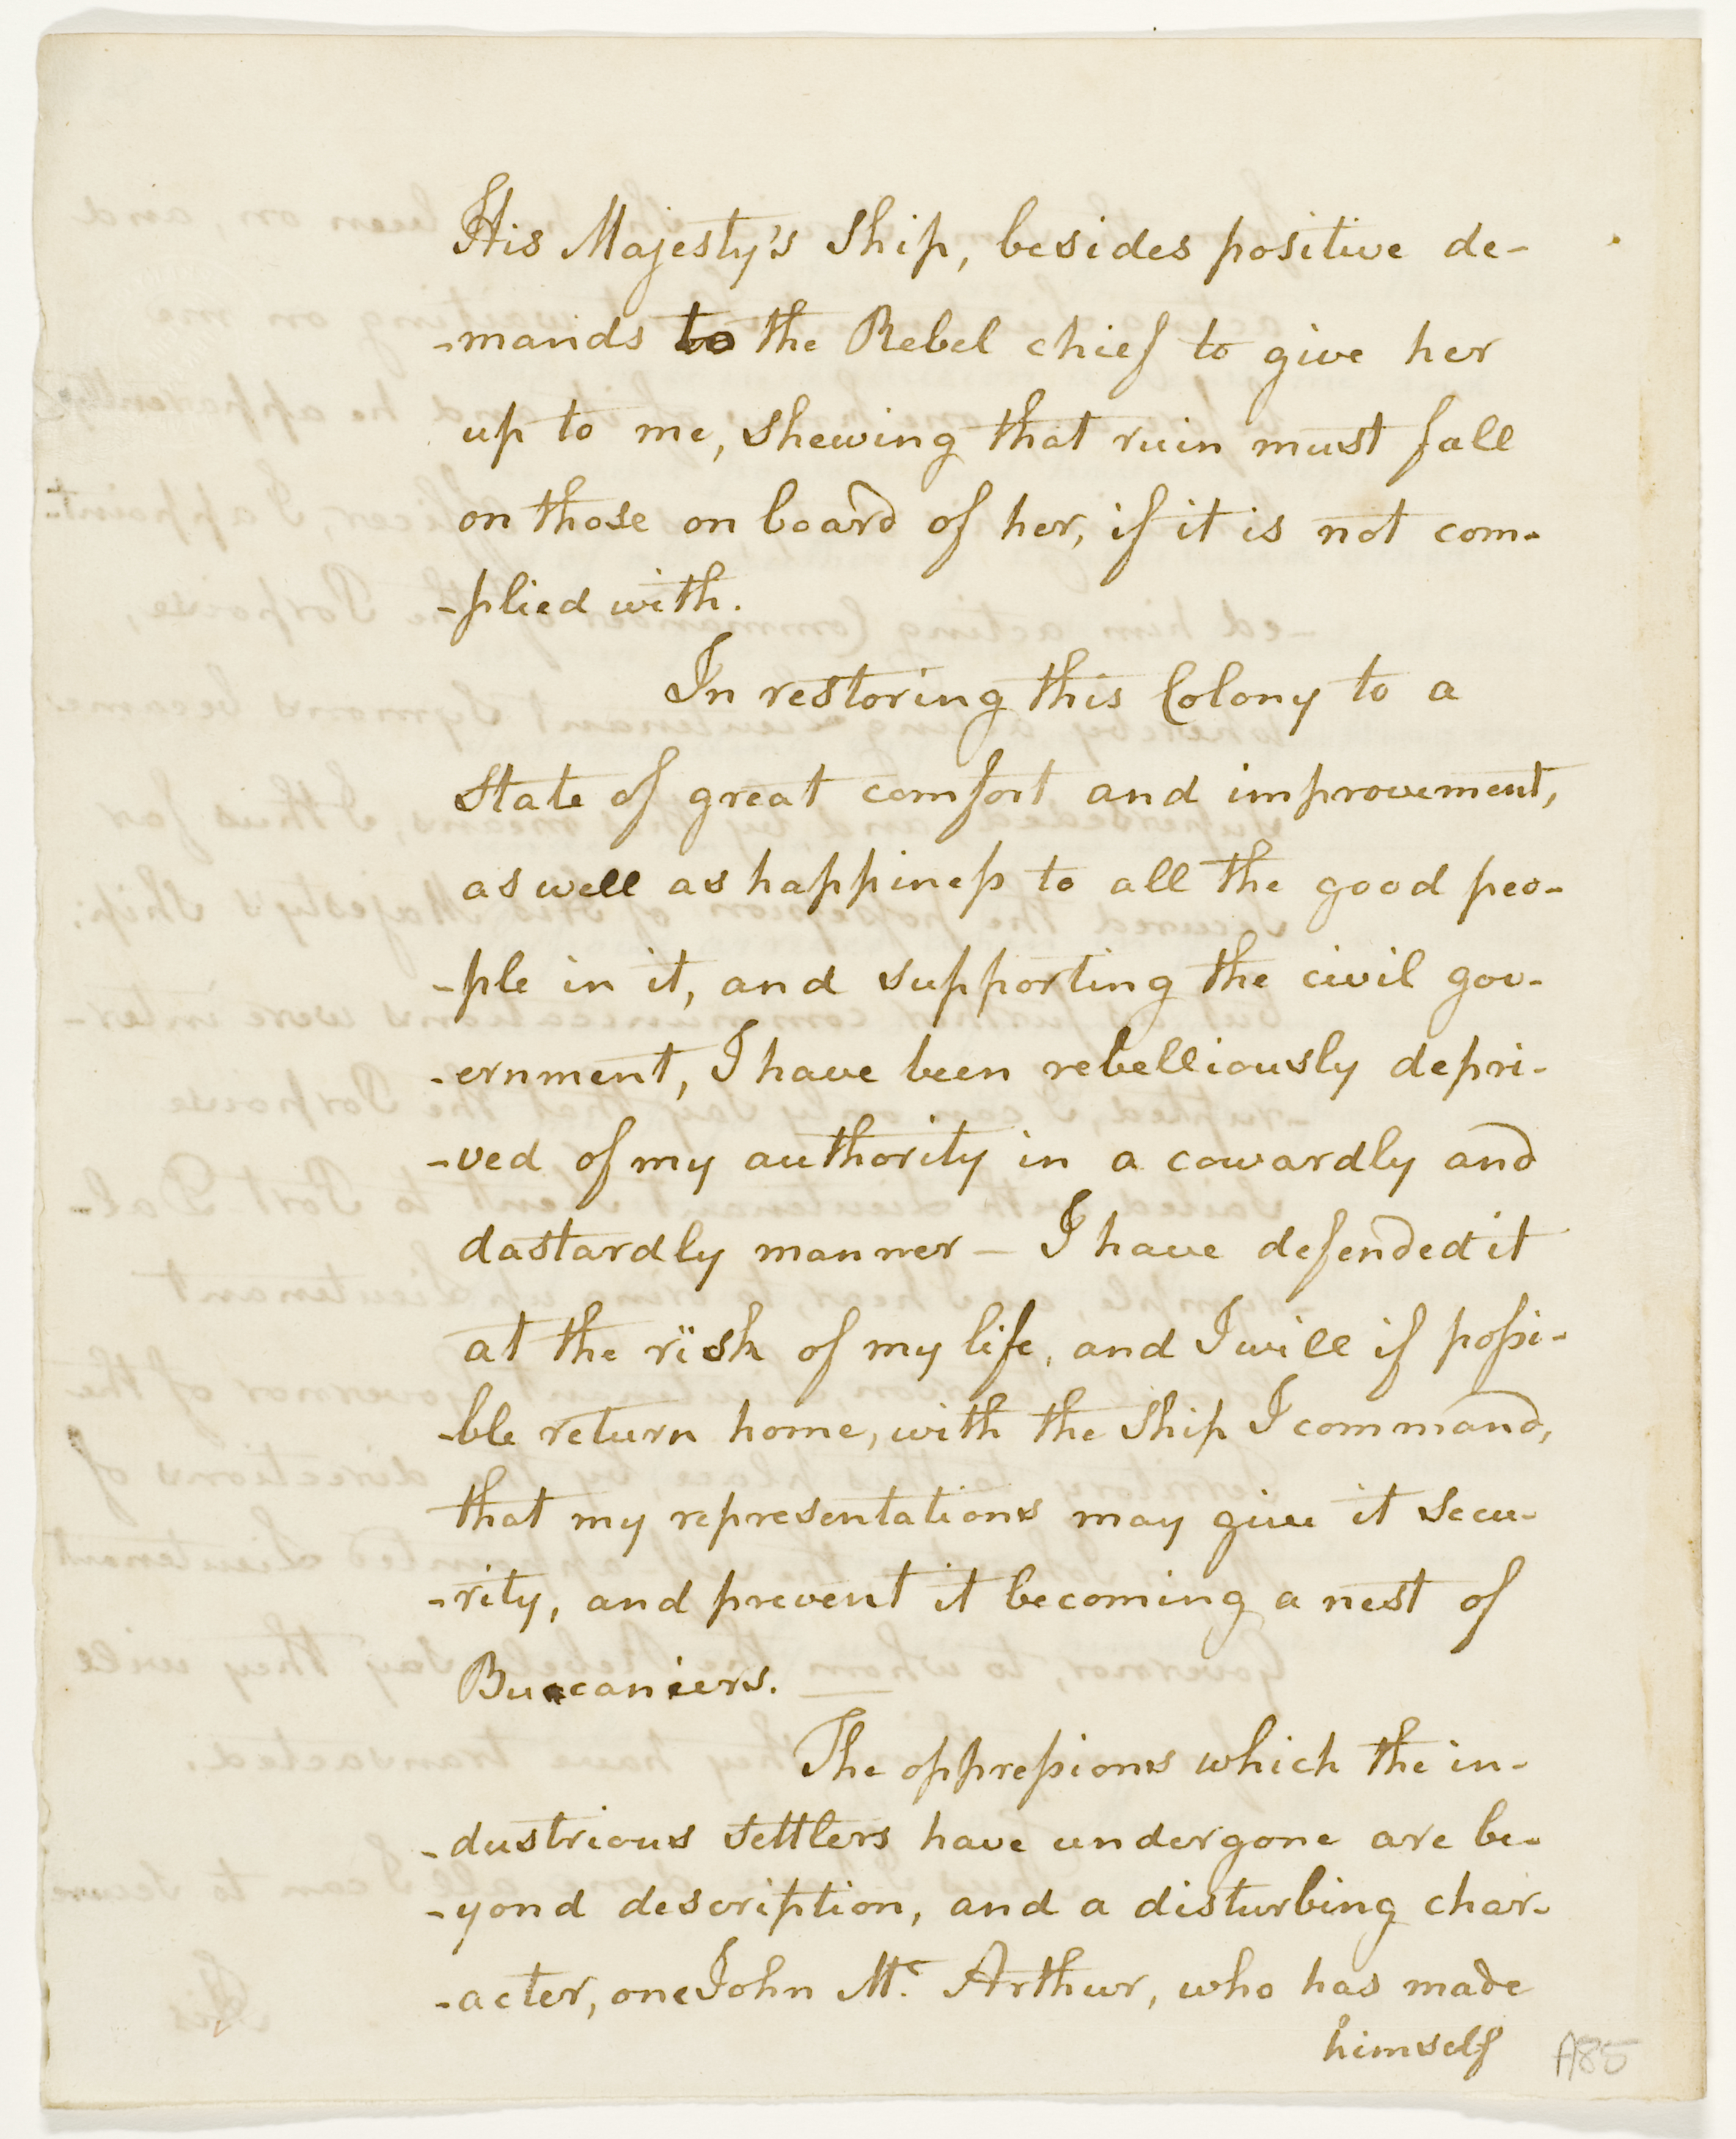 His Majesty's Ship, besides positive de-
-mands to the Rebel chief to give her
up to me, shewing that ruin must fall
on those on board of her, if it is not com-
-plied with.
In restoring this Colony to a
State of great comfort and improvement,
as well as happiness to all the good peo-
-ple in it, and supporting the civil gov-
-ernment, I have been rebelliously depri-
-ved of my authority in a cowardly and
dastardly manner — I have defended it
at the risk of my life, and I will if possi-
-ble return home, with the Ship I command,
that my representations may give it secu-
-rity, and prevent it becoming a nest of
Buccaniers. —
The oppressions which the in-
-dustrious settlers have undergone are be-
-yond description, and a disturbing char-
-acter, one John Mc. Arthur, who has made
himself
A85